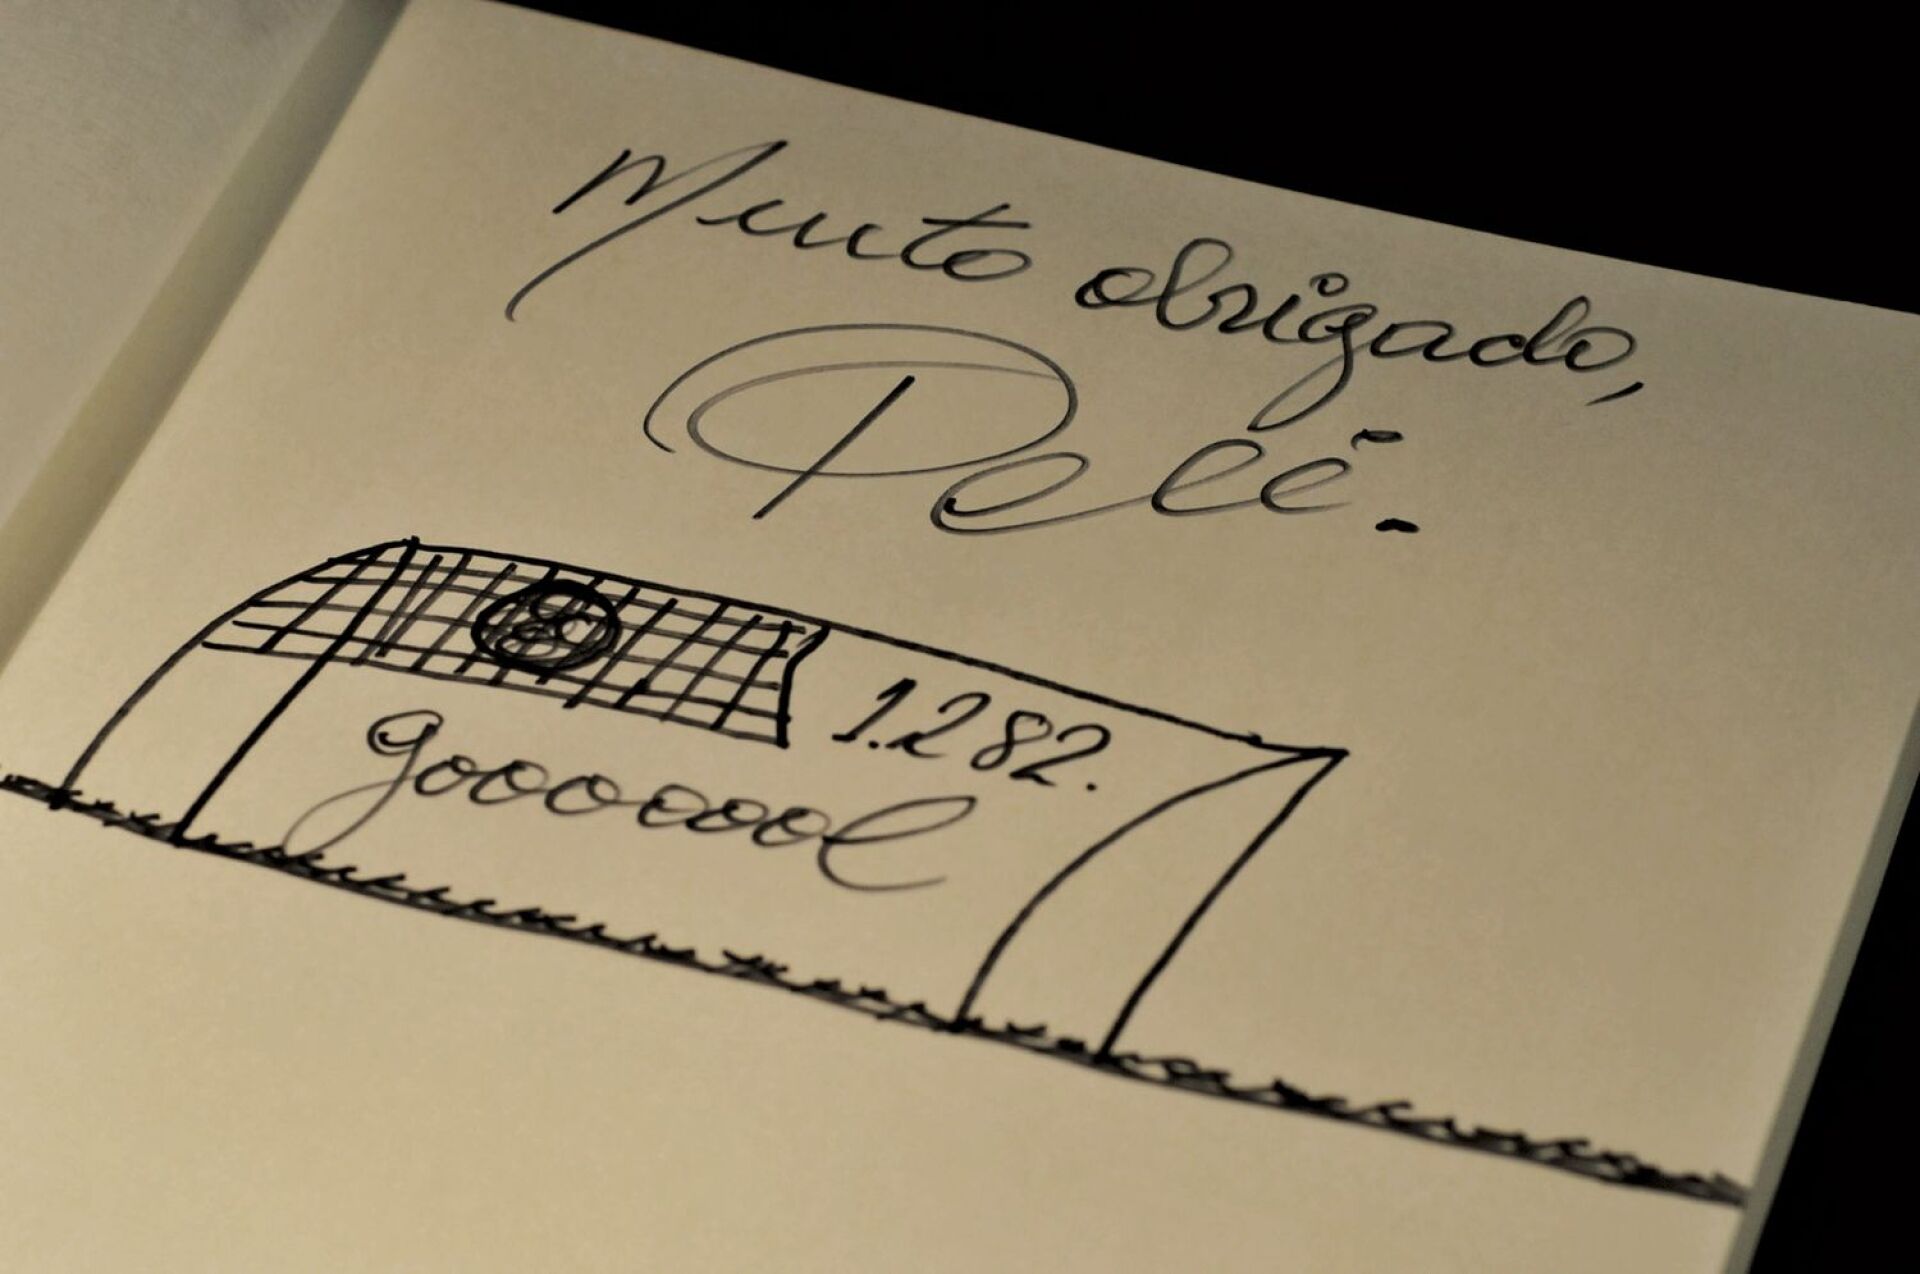 Muito obrigado,
Pelé.
1.282.
gooooool